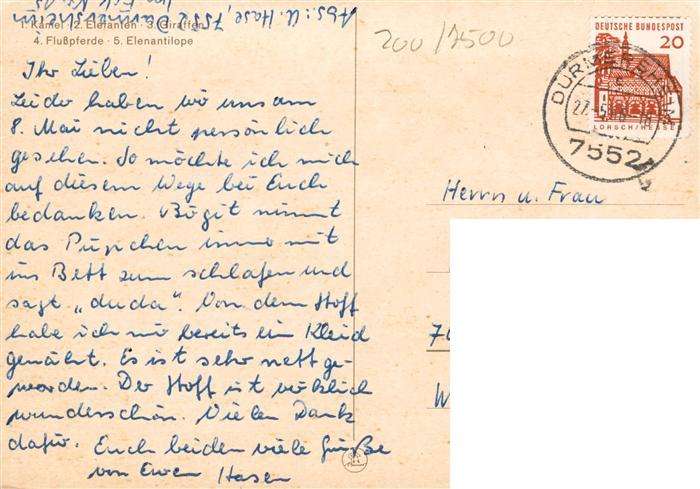 Abs: U. Hase, 7552 Durmersheim
1. Kamel · 2. Elefanten · 3. Giraffen
4. Flußpferde · 5. Elenantilope
200/7500
DEUTSCHE BUNDESPOST
20
LORSCH/HESSEN
DURMERSHEIM
7552
Ihr Lieben!
Leider haben wir uns am
8. Mai nicht persönlich
gesehen. So möchte ich mich
auf diesem Wege bei Euch
bedanken. Birgit nimmt
das Püppchen immer mit
ins Bett zum schlafen und
sagt „duda". Von dem Stoff
habe ich mir bereits ein Kleid
genäht. Es ist sehr nett ge-
worden. Der Stoff ist wirklich
wunderschön. Vielen Dank
dafür. Euch beiden viele Grüße
von Euren Hasen
Herrn u. Frau
7
W